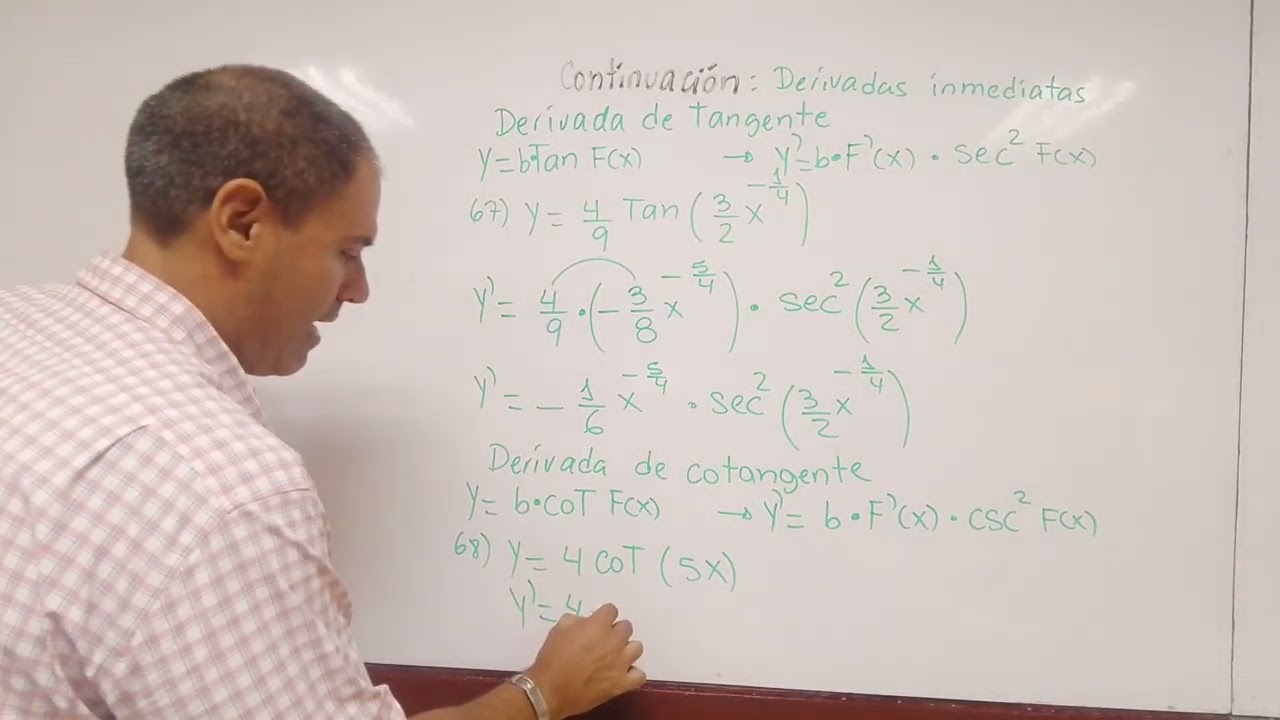 Continuación: Derivadas inmediatas
Derivada de Tangente
Y=b•Tan F(x) → Y'=b•F'(x) • sec² F(x)
67) Y= 4/9 Tan (3/2 x^(-1/4))
Y'= 4/9 • (-3/8 x^(-5/4)) • sec² (3/2 x^(-1/4))
Y'= -1/6 x^(-5/4) • sec² (3/2 x^(-1/4))
Derivada de cotangente
Y= b•coT F(x) → Y'= b•F'(x) • csc² F(x)
68) Y= 4 coT (5x)
Y'= 4